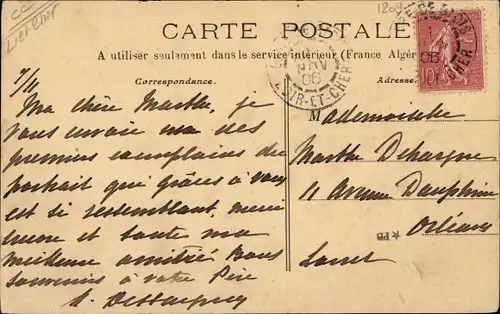 CARTE POSTALE
A utiliser seulement dans le service intérieur (France Algér
Correspondance.
Adresse
Loir et Cher
LOIR-ET-CHER
06
7/4
Ma chère Marthe, je
vous envoie un des
premiers exemplaires du
portrait qui grâces à vous
est si ressemblant, merci
encore et toute ma
meilleure amitié. Bons
souvenirs à votre Père
Mademoiselle
Marthe Dehargne
11 Avenue Dauphine
Orléans
Loiret
★ PB
10